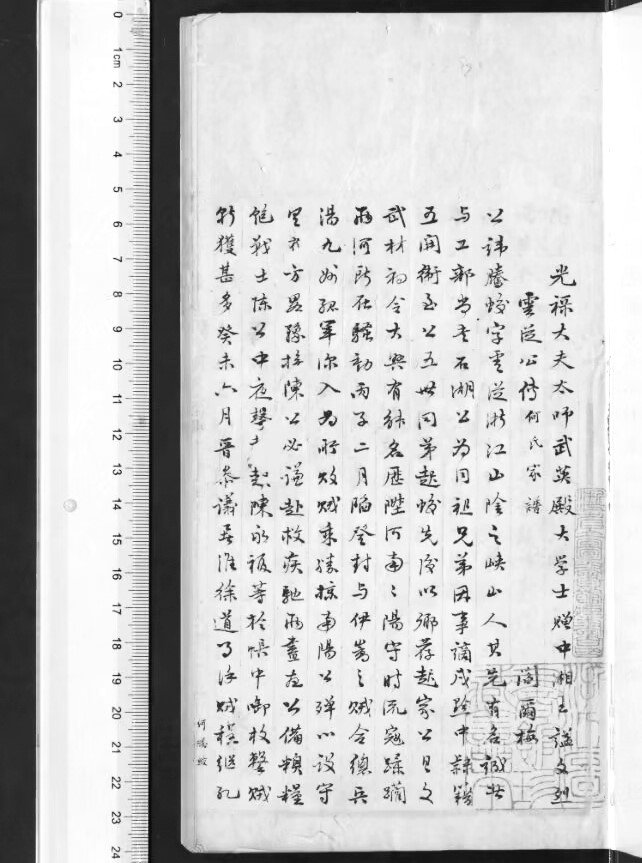 光祿大夫太師武英殿大学士贈中湘王謚文烈
雲從公傳何氏家譜 閻爾梅
公諱騰蛟字雲從浙江山陰之峽山人其先有名諴此
与工部尚書石湖公为同祖兄弟因事謫戍黔中隸籍
五開衛至公五世同弟起蛟先後以鄉荐起家公具文
武材初令大興有能名歷陞河南〻陽守時流寇蹂躪
兩河所在騷動丙子二月陷登封与伊嵩之賊合總兵
湯九州孤軍深入为所敗賊乘勝掠南陽公殫心設守
里求方畧豫撫陳公必谦赴救疾馳兩晝夜公備糗糧
飽戰士陈公中夜擊之起陳永福等於帳中啣枚擊賊
斬獲甚多癸未六月晋叅議兵淮徐道了淮賊程继孔
何騰蛟
0 1cm 2 3 4 5 6 7 8 9 10 11 12 13 14 15 16 17 18 19 20 21 22 23 24